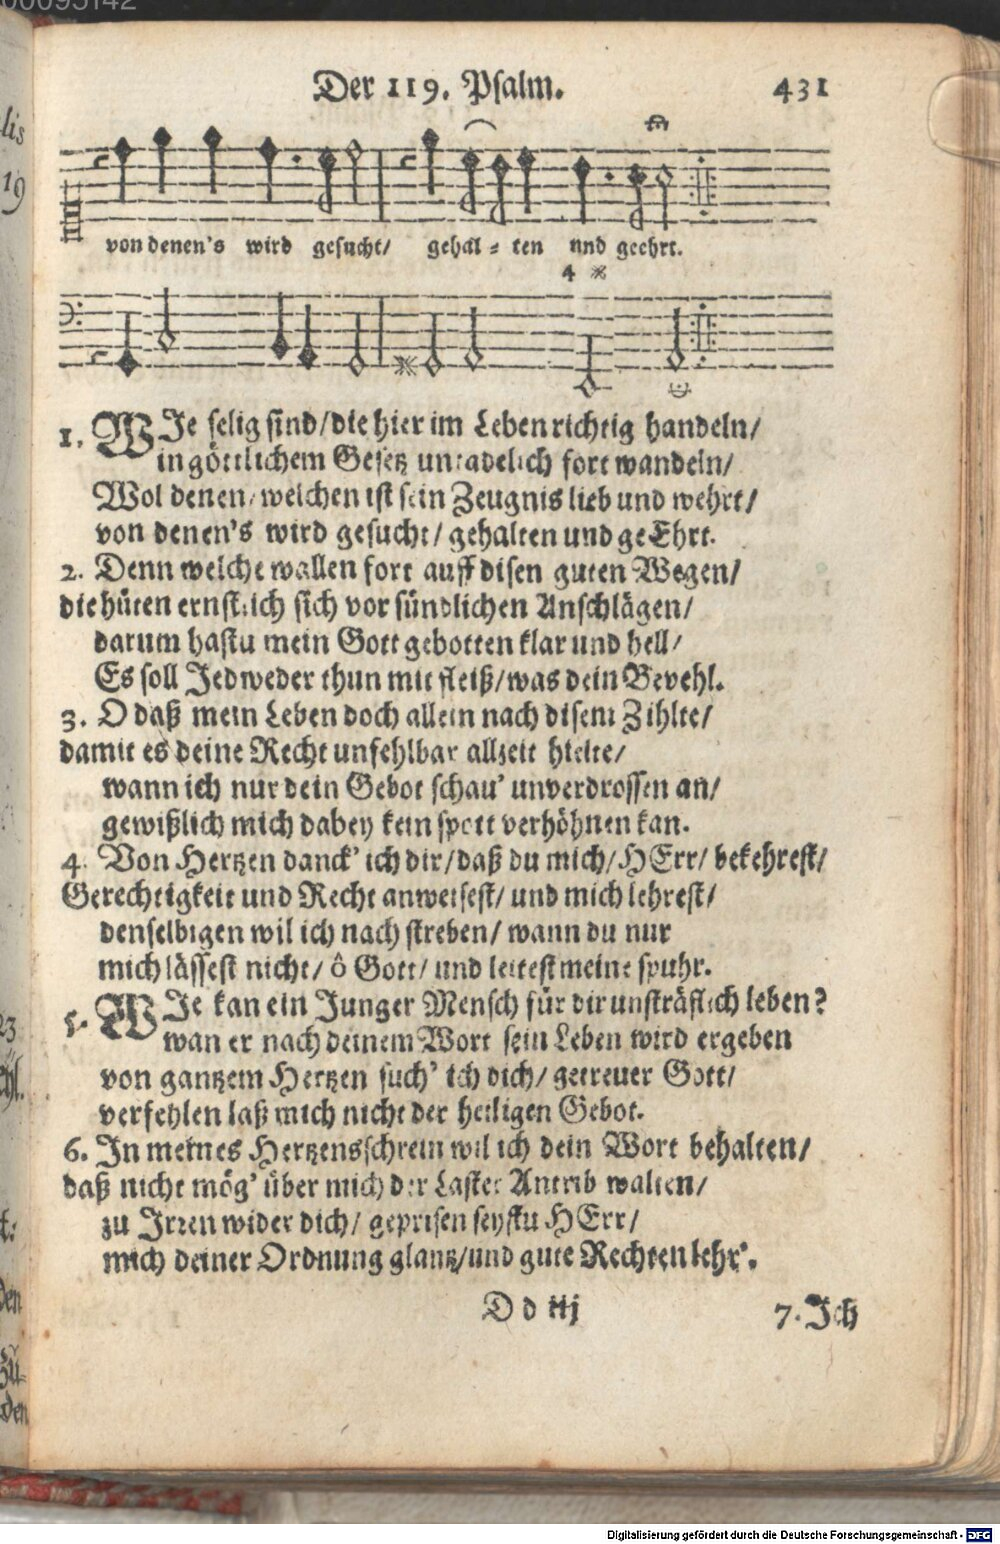 Der 119. Psalm. 431
von denen's wird gesucht/ gehal-ten und geehrt.
4
1. WIe selig sind/die hier im Leben richtig handeln/
in göttlichem Gesetz untadelich fort wandeln/
Wol denen/welchen ist sein Zeugnis lieb und wehrt/
von denen's wird gesucht/gehalten und geEhrt.
2. Denn welche wallen fort auff disen guten Wegen/
die hüten ernstlich sich vor sündlichen Anschlägen/
darum hastu mein Gott gebotten klar und hell/
Es soll Jedweder thun mit fleiß/was dein Bevehl.
3. O daß mein Leben doch allein nach disem Zihlte/
damit es deine Recht unfehlbar allzeit hielte/
wann ich nur dein Gebot schau' unverdrossen an/
gewißlich mich dabey kein spott verhöhnen kan.
4. Von Hertzen danck' ich dir/daß du mich/HErr/bekehrest/
Gerechtigkeit und Recht anweisest/und mich lehrest/
denselbigen wil ich nach streben/wann du nur
mich lässest nicht/ô Gott/und leitest meine spuhr.
5. WIe kan ein Junger Mensch für dir unsträflich leben?
wan er nach deinem Wort sein Leben wird ergeben
von gantzem Hertzen such' ich dich/getreuer Gott/
verfehlen laß mich nicht der heiligen Gebot.
6. In meines Hertzensschrein wil ich dein Wort behalten/
daß nicht mög' über mich der Laster Antrib walten/
zu Irren wider dich/geprisen seystu HErr/
mich deiner Ordnung glantz/und gute Rechten lehr'.
D d iij 7. Ich
Digitalisierung gefördert durch die Deutsche Forschungsgemeinschaft - DFG